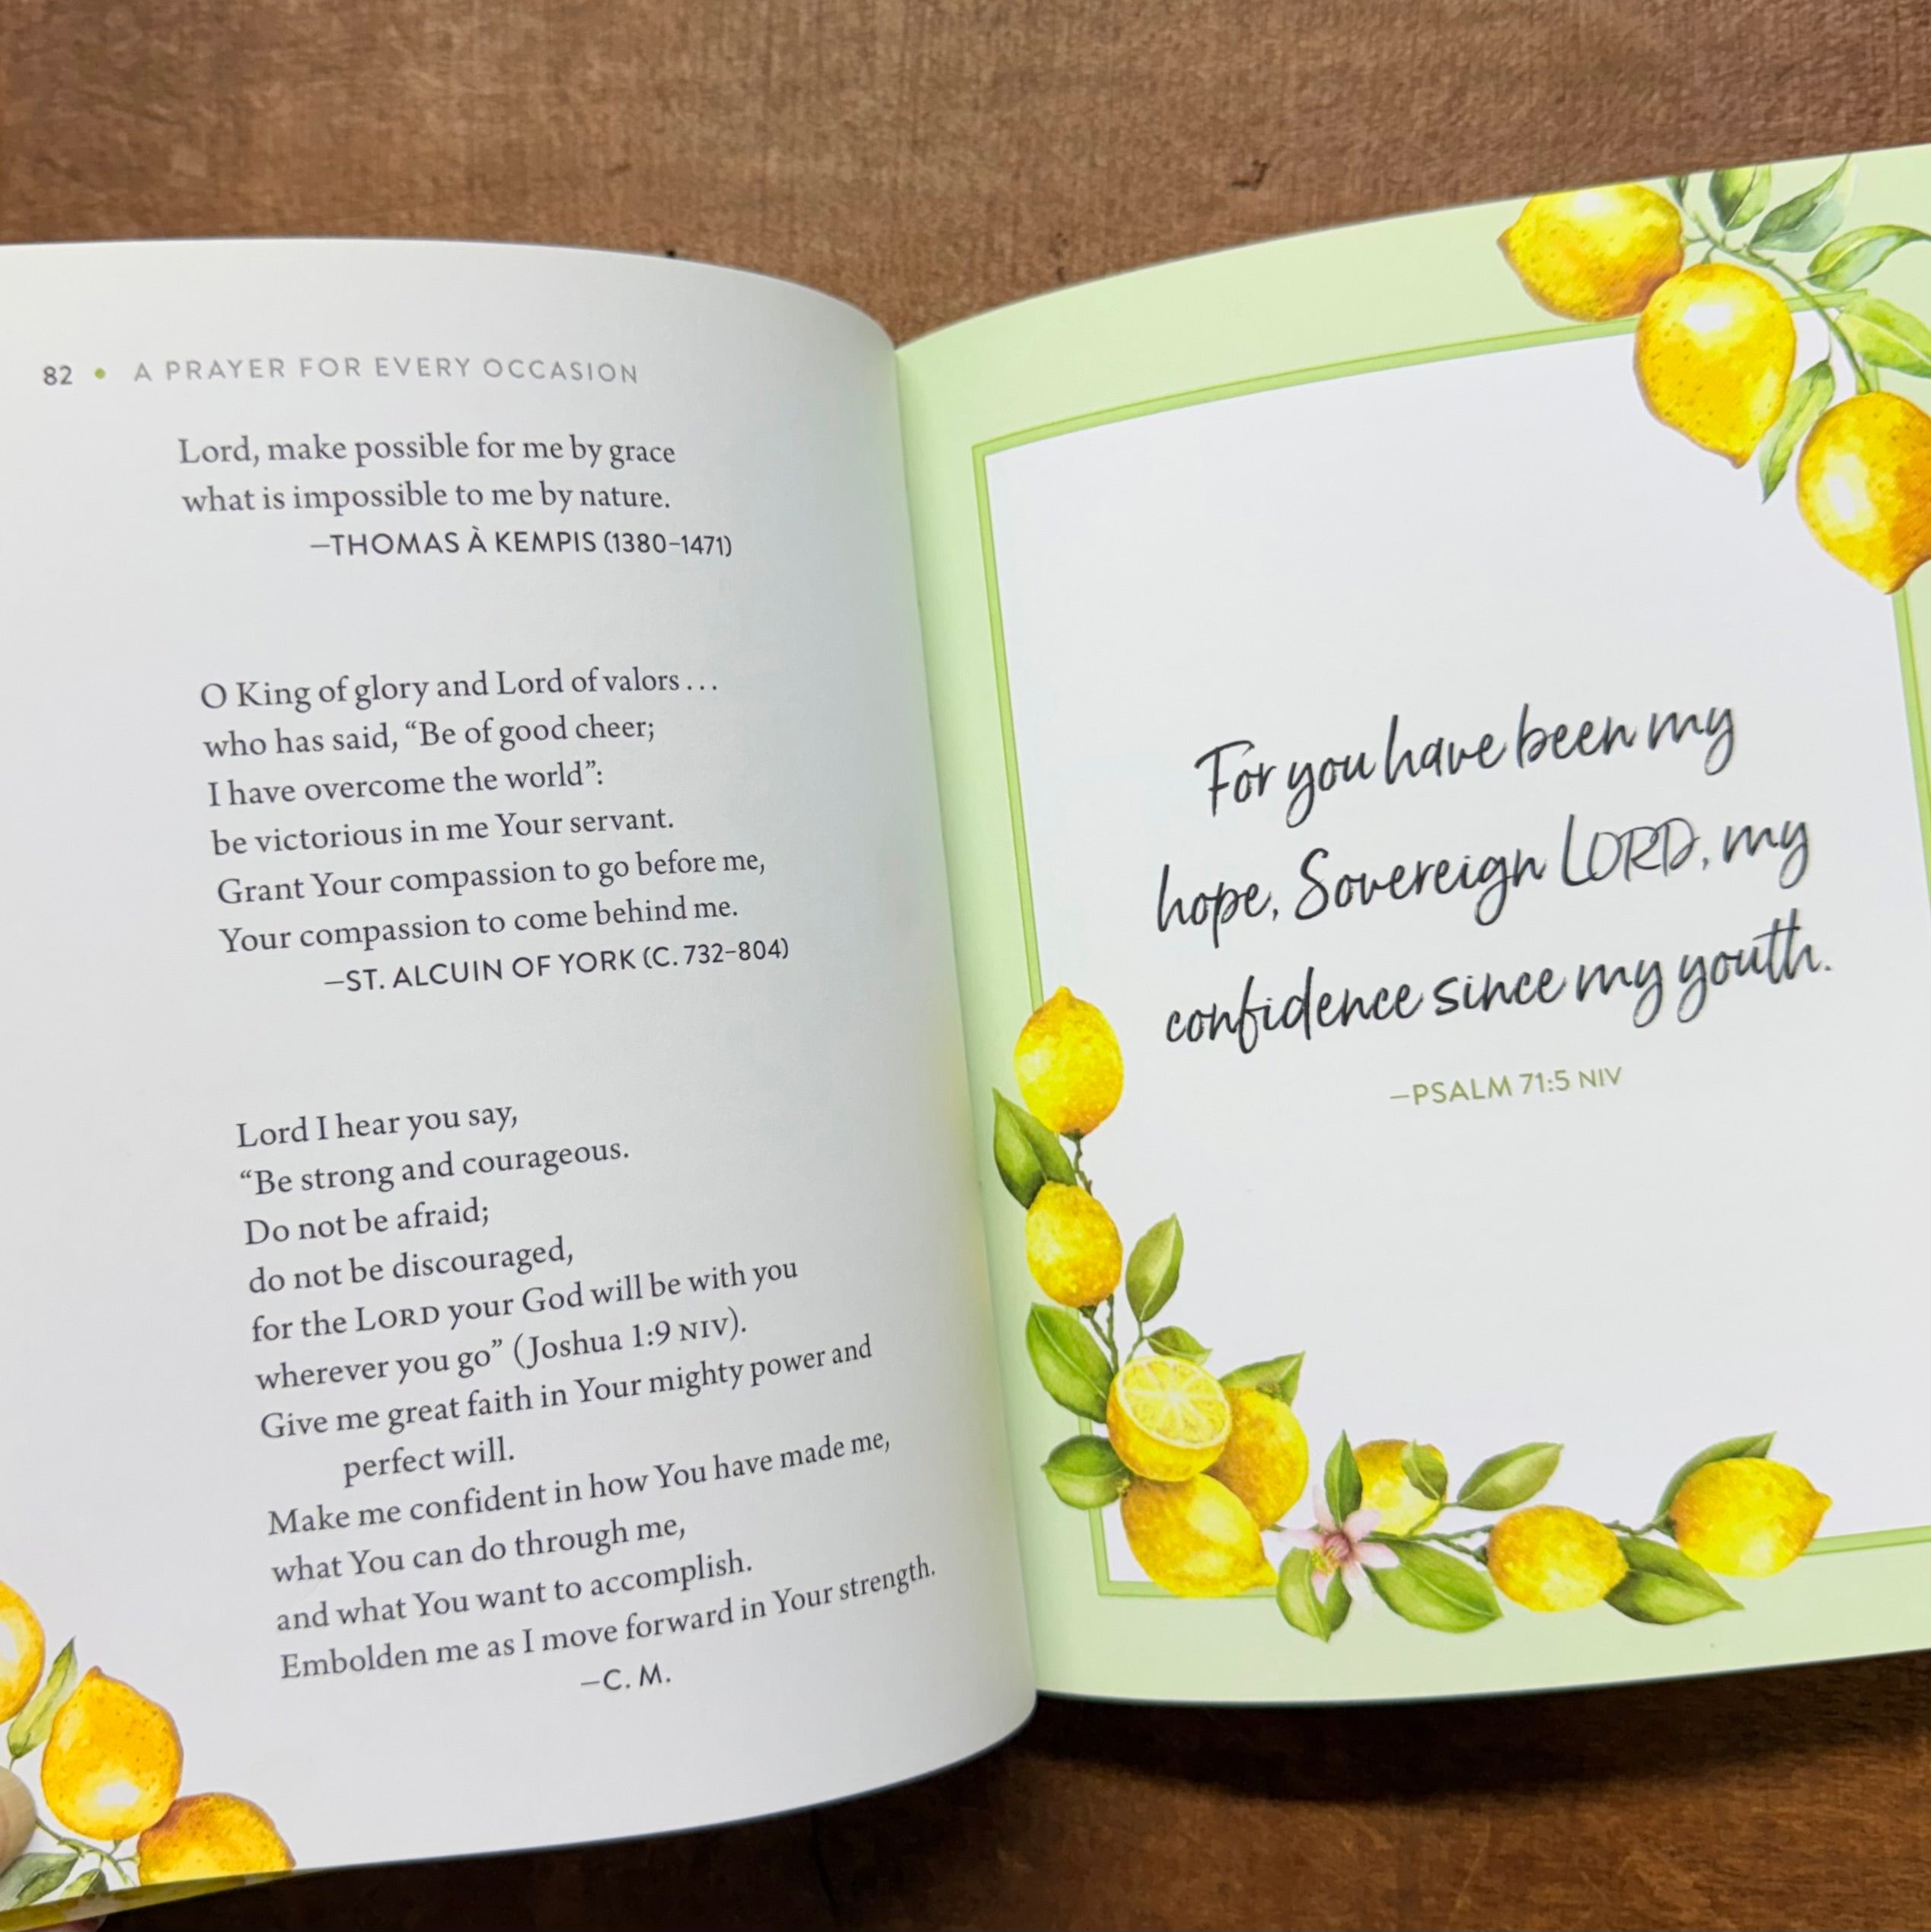 82 • A PRAYER FOR EVERY OCCASION
Lord, make possible for me by grace
what is impossible to me by nature.
—THOMAS À KEMPIS (1380–1471)
O King of glory and Lord of valors . . .
who has said, “Be of good cheer;
I have overcome the world”:
be victorious in me Your servant.
Grant Your compassion to go before me,
Your compassion to come behind me.
—ST. ALCUIN OF YORK (C. 732–804)
Lord I hear you say,
“Be strong and courageous.
Do not be afraid;
do not be discouraged,
for the LORD your God will be with you
wherever you go” (Joshua 1:9 NIV).
Give me great faith in Your mighty power and
perfect will.
Make me confident in how You have made me,
what You can do through me,
and what You want to accomplish.
Embolden me as I move forward in Your strength.
—C. M.
For you have been my
hope, Sovereign LORD, my
confidence since my youth.
—PSALM 71:5 NIV